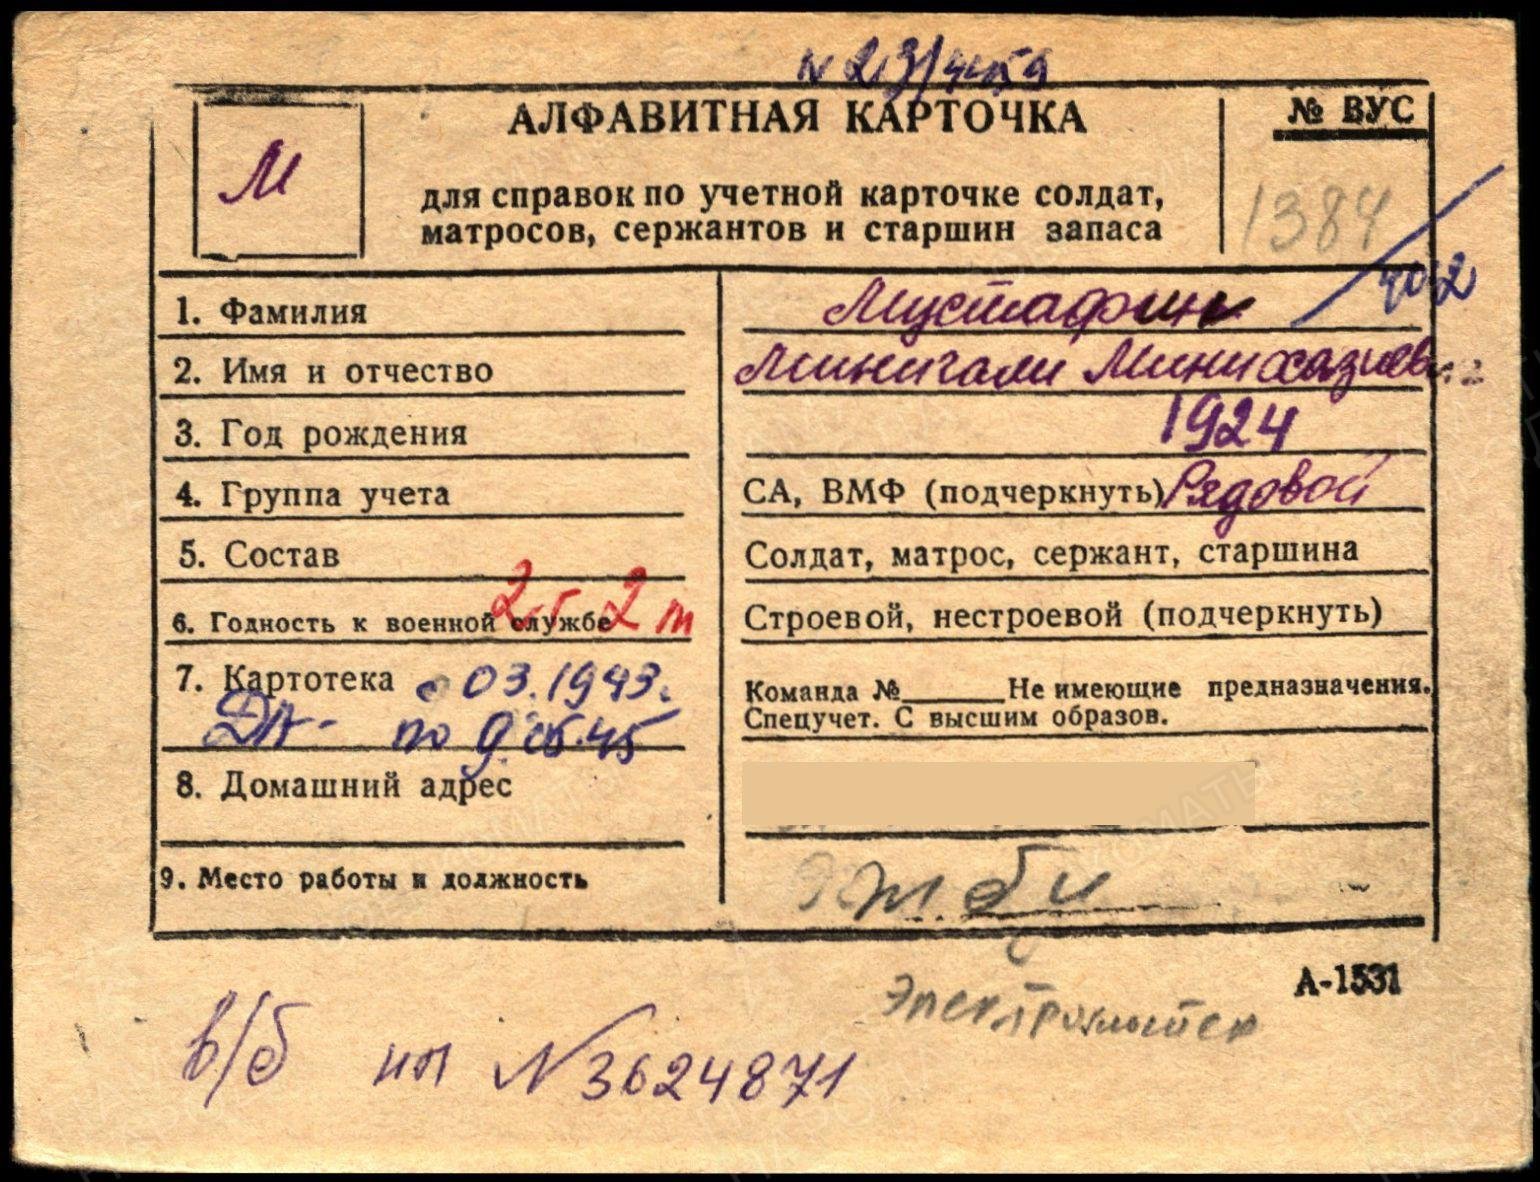 N 23/4459
АЛФАВИТНАЯ КАРТОЧКА
№ ВУС
М
для справок по учетной карточке солдат,
матросов, сержантов и старшин запаса
1384
1. Фамилия Мустафин
2. Имя и отчество Минигали Миниха­зиев
3. Год рождения 1924
4. Группа учета СА, ВМФ (подчеркнуть) Рядовой
5. Состав Солдат, матрос, сержант, старшина
6. Годность к военной службе Строевой, нестроевой (подчеркнуть)
7. Картотека с 03.1943. Команда №______Не имеющие предназначения.
ДА- по 9.05.45 Спецучет. С высшим образов.
8. Домашний адрес
9. Место работы и должность
Электромонтер
А-1531
в/б НП № 3624871